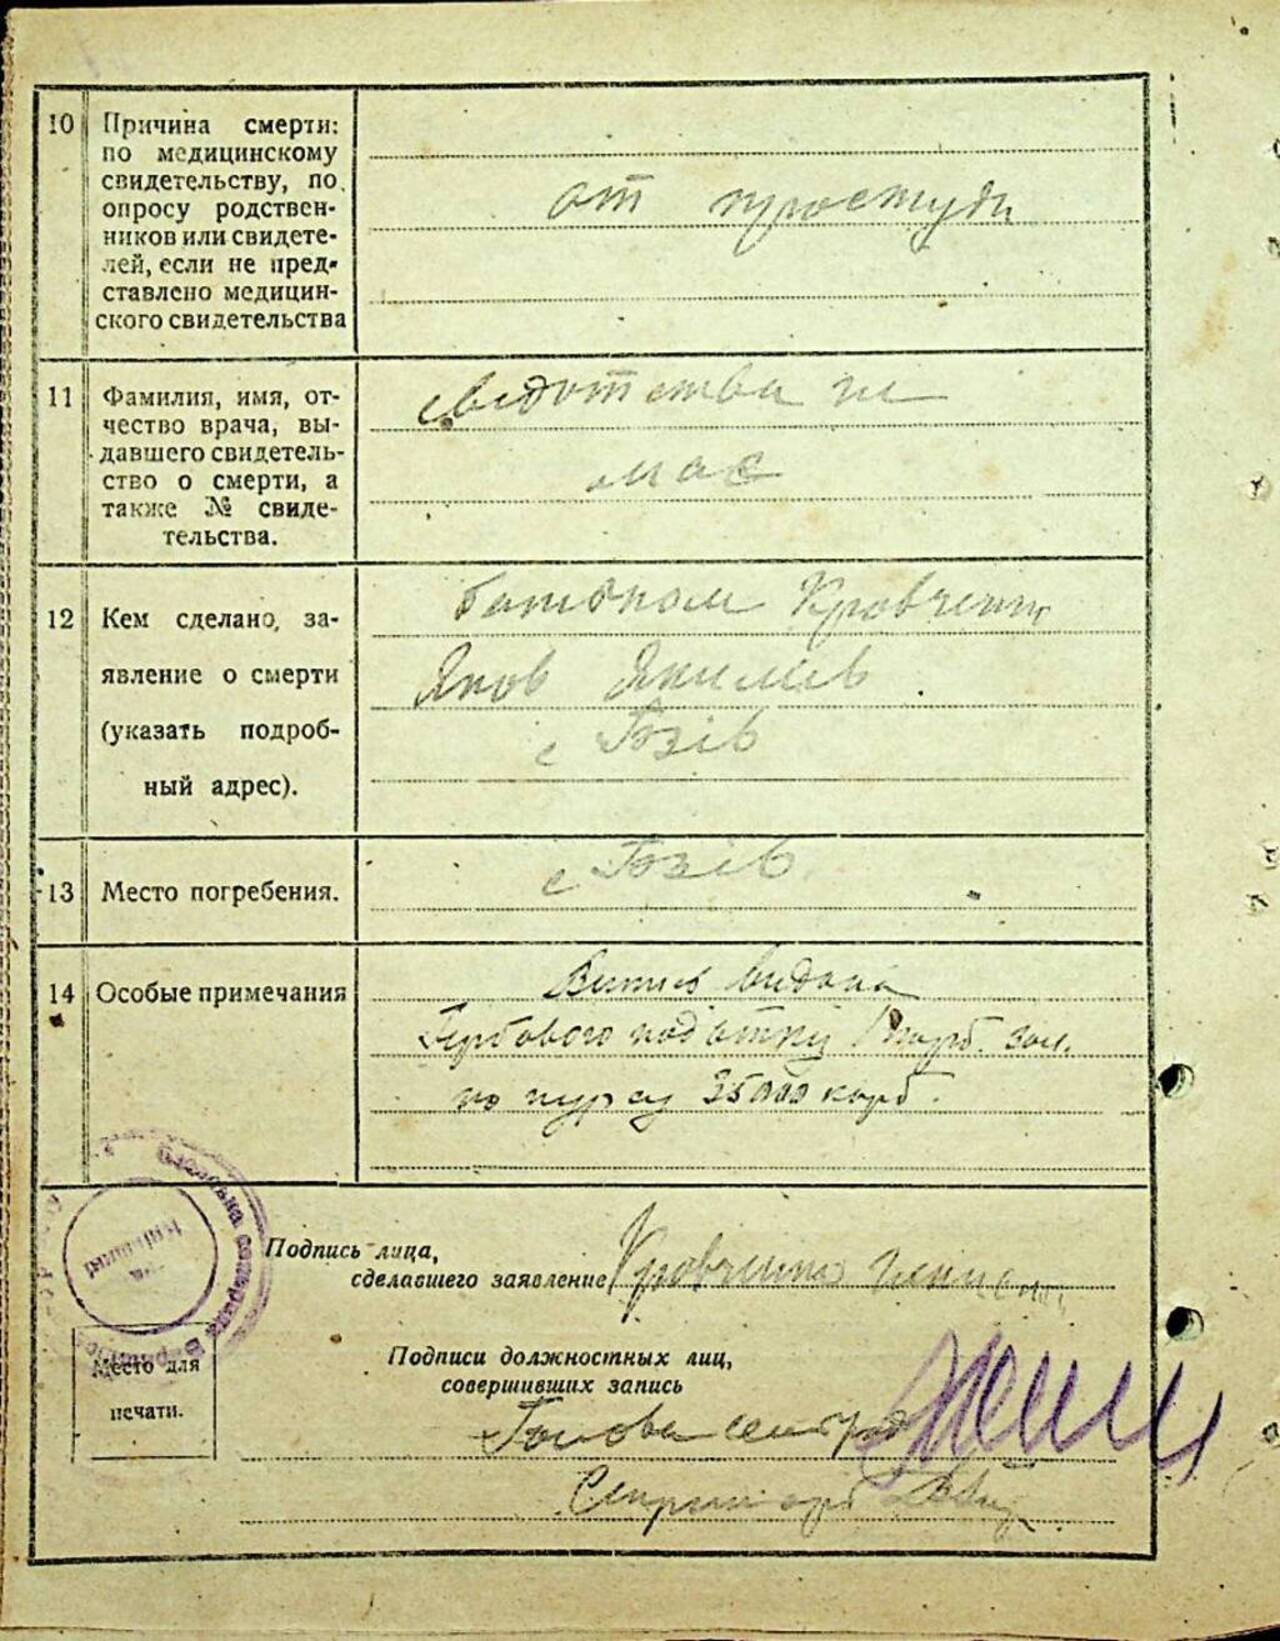 10 Причина смерти:
по медицинскому
свидетельству, по
опросу родствен-
ников или свидете-
лей, если не пред-
ставлено медицин-
ского свидетельства
от простуди
11 Фамилия, имя, от-
чество врача, вы-
давшего свидетель-
ство о смерти, а
также № свиде-
тельства.
свідотства не
має
12 Кем сделано, за-
явление о смерти
(указать подроб-
ный адрес).
батьком Кровченко
Яков Якимов
с Гозів
13 Место погребения.
с Гозів
14 Особые примечания
Випис видано
Гербового податку 1 карб. зол.
по курсу 35000 карб.
Подпись лица,
сделавшего заявление Кровченко
Подписи должностных лиц,
совершивших запись
Место для
печати.
Голова сельрад
Секритарь